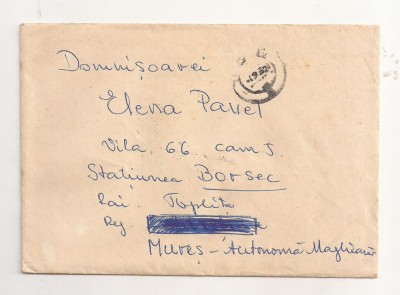 Domnișoarei
Elena Pavel
Vila 66 cam 5
Stațiunea Borsec
Rai. Toplița
Reg
Mureș - Autonomă Maghiară